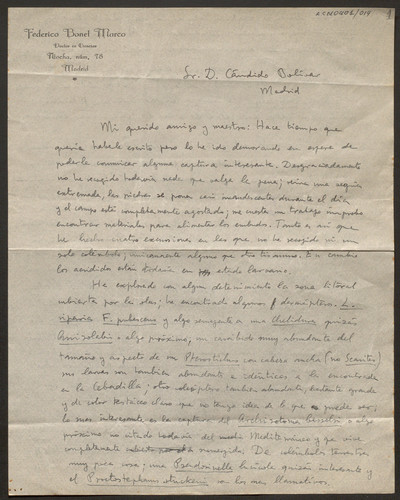 ACN0806/014
Federico Bonet Marco
Doctor en Ciencias
Atocha, núm. 75
Madrid
Sr. D. Cándido Bolívar
Madrid
Mi querido amigo y maestro: Hace tiempo que
quería haberle escrito pero lo he ido demorando en espera de
poderle comunicar alguna captura interesante. Desgraciadamente
no he cogido todavía nada que valga la pena; reina una sequía
extremada, las piedras se ponen casi incandescentes durante el día
y el campo está completamente agostado; me cuesta un trabajo improbo
encontrar materiales para alimentar los embudos. Tanto es así que
he hecho cuatro excursiones en las que no he recogido ni un
solo colémbolo, únicamente algunos que otro tisanuro. En cambio
los acrídidos están todavía en estado larvario.
He explorado con algún detenimiento la zona litoral
cubierta por las olas; he encontrado algunos dermápteros: L.
riparia F. y algo semejante a una Quelidura quizás
o algo próximo; un carábido muy abundante del
tamaño y aspecto de un Pterostichus con cabeza ancha (no Scarites)
sus larvas son también abundantes e idénticas a las encontradas
en la ; otro coleóptero también abundante, bastante grande
y de color testáceo claro que no tengo idea de lo que puede ser;
lo más interesante es la captura del Archisotoma besselsi o algo
próximo no citado todavía del Mediterráneo y que vive
completamente sumergido. De colémbolos terrestres
muy poca cosa; una Pseudosinella quizás interesante y
el Proctostephanus stuckeni con los más llamativos.